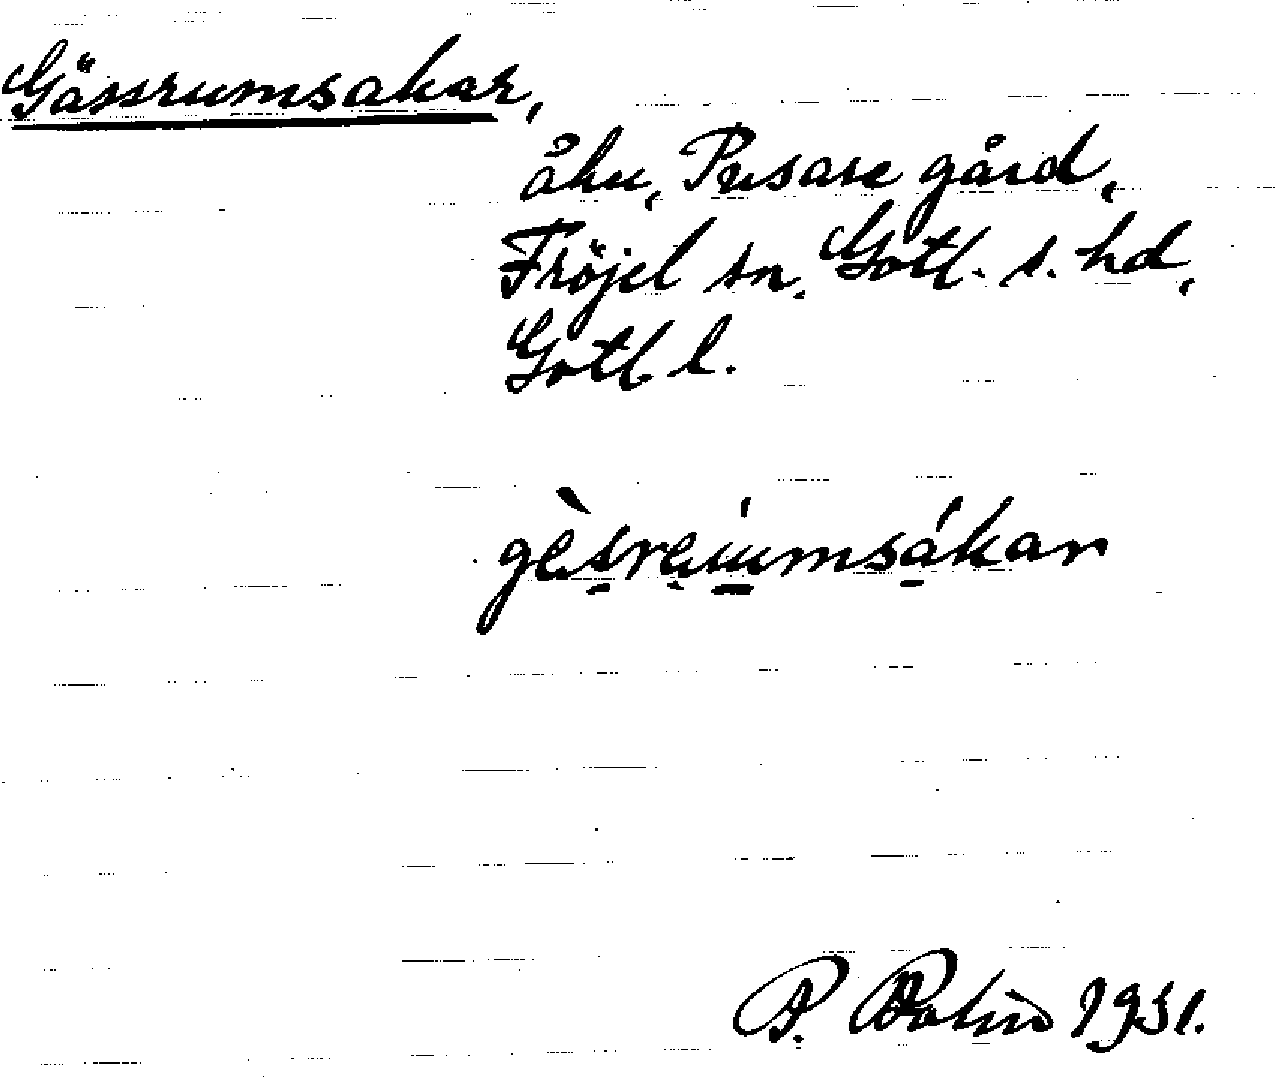 Gässrumsakar,
åku, Pusare gård,
Fröjel sn. Gotl. s. hd,
Gotl l.
gèsreiumsákar
P. Bohin 1931.